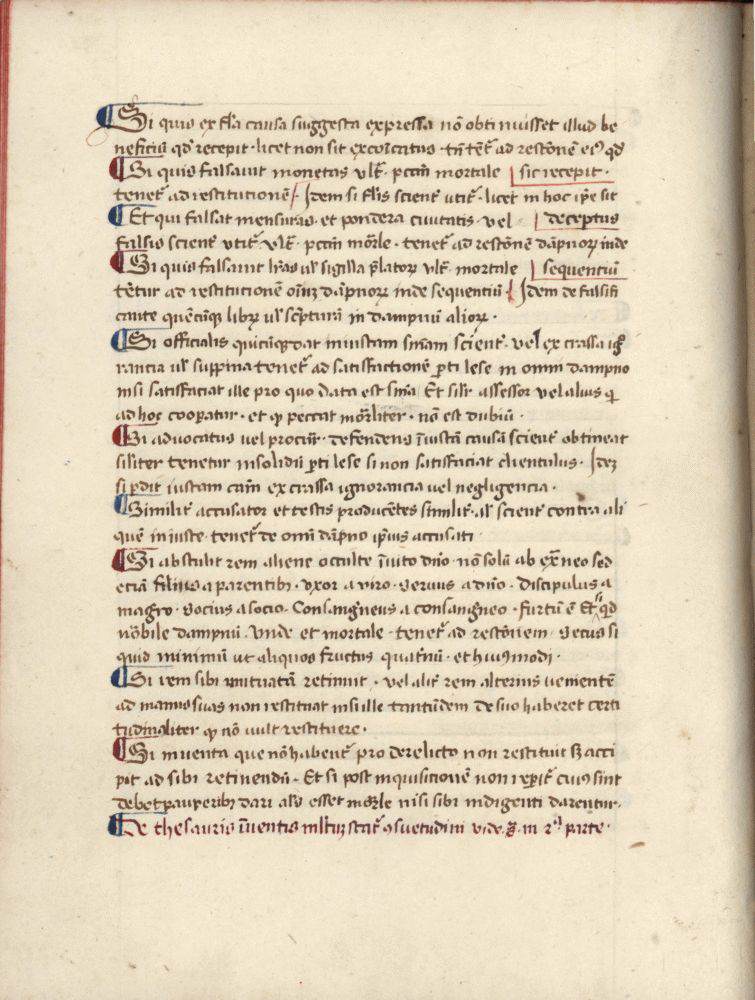 Si quis ex fl̄a causa suggesta expressa nō obtinuisset illud be
neficiū qđ recepit · licet non sit excōicatus · tn̄ tenet̄ ad restōnē eiꝰ qđ
Si quis falsauit monetas vlt̄ · pccm̄ mortale sic recepit ·
tenet̄ ad restitutionē / Idem si fl̄is scient̄ utit̄ · licet in hoc ip̄e sit
Et qui falsat mensuras · et pondera ciuitatis · vel deceptus
falsis scient̄ vtit̄ vlt̄ · pccm̄ mōrle · tenet̄ ad restōnē dāpnoꝝ inde
Si quis falsauit lr̄as ul̄ sigilla p̄latoꝝ vlt̄ · mortale sequentiū
tēt̄ur ad restitucionē oīuꝫ dāpnoꝝ inde sequentiū / Idem de falsifi
cante quēcūqꝫ libꝝ ul̄ sc̄pturā in dampnū alioꝝ ·
Si officialis quicūqꝫ dat iniustam sn̄iam scient̄ · vel ex crassa igō
rancia ul̄ suppina tenet̄ ad satisfactionē ꝑti lese in omni dampno
nisi satisfaciat ille pro quo data est sn̄ia Et sil̄r assessor vel alius qͥ
ad hoc coopatur · et qͥ peccat mōrliter · nō est dubiū ·
Si aduocatus uel procūr · defendens īiustā causā scient̄ obtineat
sil̄iter tenetur insolidū ꝑti lese si non satisfaciat clientulus · Ideꝫ
si ꝑdit iustam cām ex crassa ignorancia uel negligencia ·
Similit̄ accusator et testis producētes similit̄ · ul̄ scient̄ contra ali
quē iniuste · tenet̄ de omī dāpno ip̄ius accusati ·
Si abstulit rem aliene occulte īuito dn̄o · nō solū ab ext̄neo sed
eciā filius a parentibꝫ · vxor a viro · Seruus a dn̄o · Discipulus a
magr̄o · Socius a socio · Consangneus a consangneo · furtū ē Et qͥd
nōbile dampnū · Vnde et mortale · tenet̄ ad restōnem · Secus si
quid minimū ut aliquos fructus quat̄nū · et huiꝰmodi ·
Si rem sibi mutuatā retinuit · vel alit̄ rem alterius uenientē
ad manus suas non restituat nisi ille tantūdem de suo haberet certi
tudinaliter qͥ nō uult restituere ·
Si inuenta que nō habent̄ pro derelicto non restituit sꝫ acci
pit ad sibi retinendū · Et si post inquisicionē non reperit̄ cuiꝰ sint
debet pauperibꝫ dari al̄s esset mōrle nisi sibi indigenti darentur ·
De thesauris īuentis vide in 2ᵃ parte ·